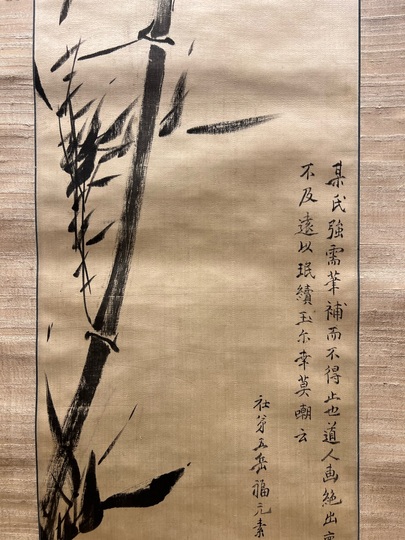 某氏強需筆補而不得止也道人画絶出
不及遠以珉續玉尓幸莫嘲云
社弟五岳福元素